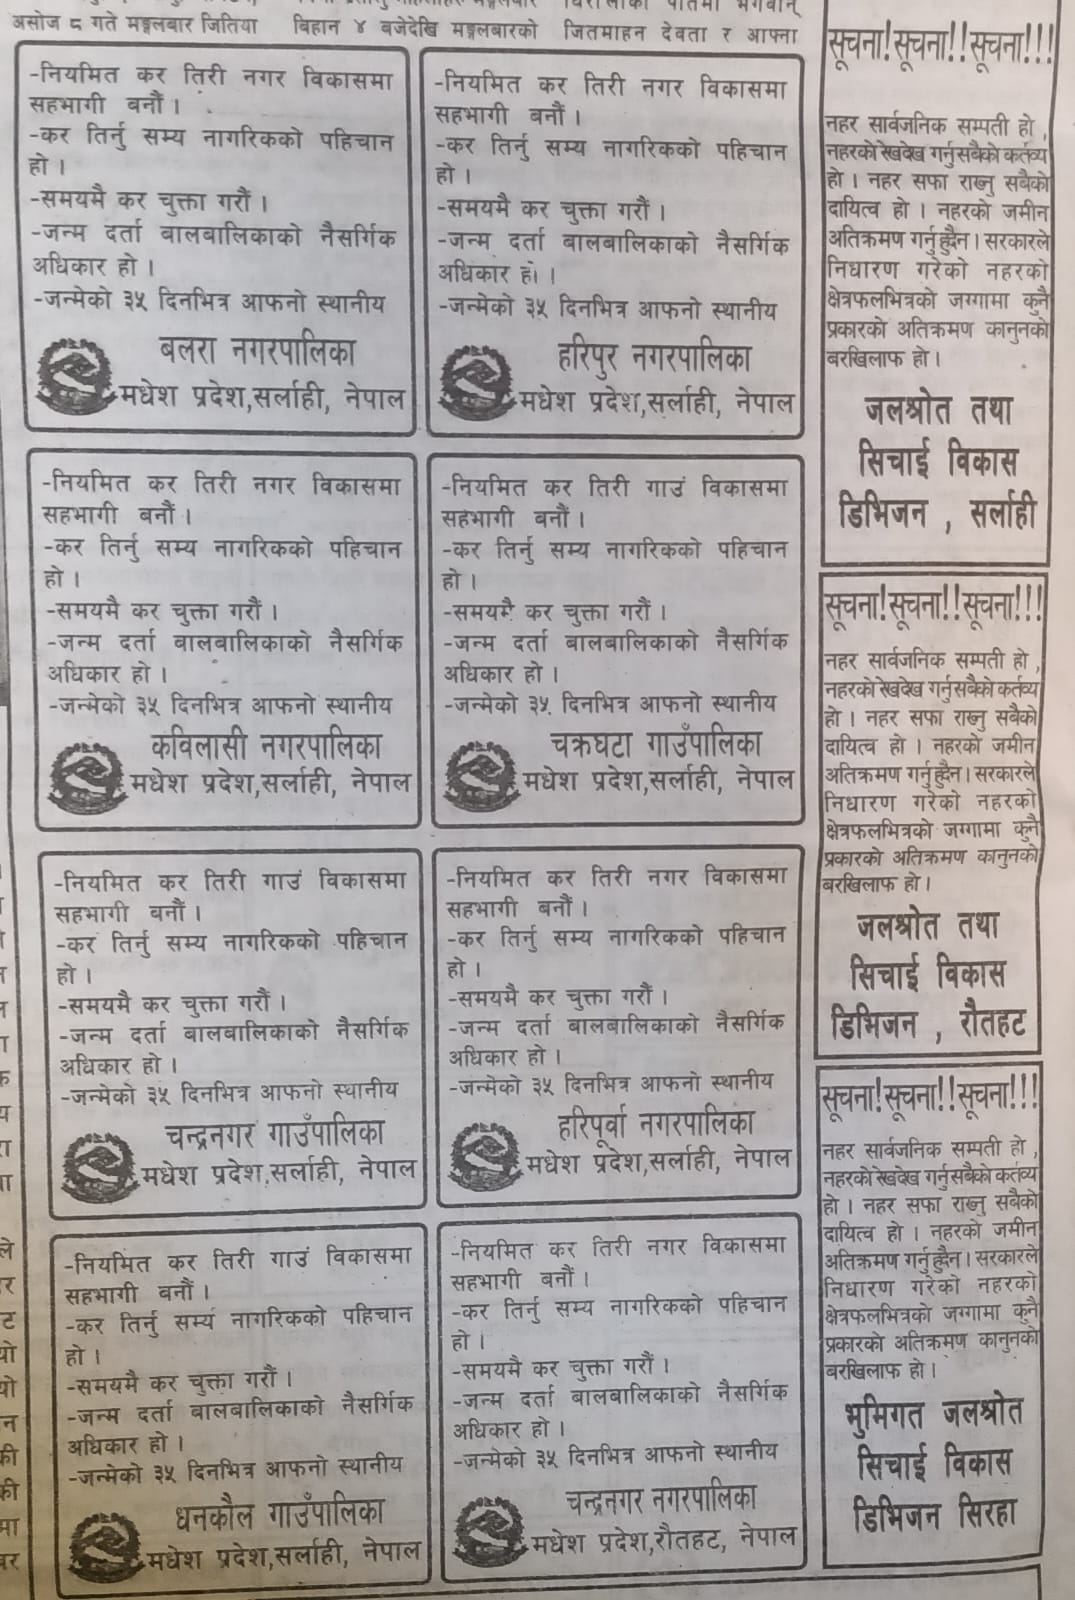 असोज ८ गते मङ्गलबार जितिया
बिहान ४ बजेदेखि मङ्गलबारको
जितमाहन देवता र आफ्ना
-नियमित कर तिरी नगर विकासमा
सहभागी बनौं ।
-कर तिर्नु सम्य नागरिकको पहिचान
हो ।
-समयमै कर चुक्ता गरौं ।
-जन्म दर्ता बालबालिकाको नैसर्गिक
अधिकार हो ।
-जन्मेको ३५ दिनभित्र आफनो स्थानीय
बलरा नगरपालिका
मधेश प्रदेश,सर्लाही, नेपाल
-नियमित कर तिरी नगर विकासमा
सहभागी बनौं ।
-कर तिर्नु सम्य नागरिकको पहिचान
हो ।
-समयमै कर चुक्ता गरौं ।
-जन्म दर्ता बालबालिकाको नैसर्गिक
अधिकार हो ।
-जन्मेको ३५ दिनभित्र आफनो स्थानीय
हरिपुर नगरपालिका
मधेश प्रदेश,सर्लाही, नेपाल
-नियमित कर तिरी नगर विकासमा
सहभागी बनौं ।
-कर तिर्नु सम्य नागरिकको पहिचान
हो ।
-समयमै कर चुक्ता गरौं ।
-जन्म दर्ता बालबालिकाको नैसर्गिक
अधिकार हो ।
-जन्मेको ३५ दिनभित्र आफनो स्थानीय
कविलासी नगरपालिका
मधेश प्रदेश,सर्लाही, नेपाल
-नियमित कर तिरी गाउं विकासमा
सहभागी बनौं ।
-कर तिर्नु सम्य नागरिकको पहिचान
हो ।
-समयमै कर चुक्ता गरौं ।
-जन्म दर्ता बालबालिकाको नैसर्गिक
अधिकार हो ।
-जन्मेको ३५ दिनभित्र आफनो स्थानीय
चक्रघटा गाउँपालिका
मधेश प्रदेश,सर्लाही, नेपाल
-नियमित कर तिरी गाउं विकासमा
सहभागी बनौं ।
-कर तिर्नु सम्य नागरिकको पहिचान
हो ।
-समयमै कर चुक्ता गरौं ।
-जन्म दर्ता बालबालिकाको नैसर्गिक
अधिकार हो ।
-जन्मेको ३५ दिनभित्र आफनो स्थानीय
चन्द्रनगर गाउँपालिका
मधेश प्रदेश,सर्लाही, नेपाल
-नियमित कर तिरी नगर विकासमा
सहभागी बनौं ।
-कर तिर्नु सम्य नागरिकको पहिचान
हो ।
-समयमै कर चुक्ता गरौं ।
-जन्म दर्ता बालबालिकाको नैसर्गिक
अधिकार हो ।
-जन्मेको ३५ दिनभित्र आफनो स्थानीय
हरिपूर्वा नगरपालिका
मधेश प्रदेश,सर्लाही, नेपाल
-नियमित कर तिरी गाउं विकासमा
सहभागी बनौं ।
-कर तिर्नु सम्य नागरिकको पहिचान
हो ।
-समयमै कर चुक्ता गरौं ।
-जन्म दर्ता बालबालिकाको नैसर्गिक
अधिकार हो ।
-जन्मेको ३५ दिनभित्र आफनो स्थानीय
धनकौल गाउँपालिका
मधेश प्रदेश,सर्लाही, नेपाल
-नियमित कर तिरी नगर विकासमा
सहभागी बनौं ।
-कर तिर्नु सम्य नागरिकको पहिचान
हो ।
-समयमै कर चुक्ता गरौं ।
-जन्म दर्ता बालबालिकाको नैसर्गिक
अधिकार हो ।
-जन्मेको ३५ दिनभित्र आफनो स्थानीय
चन्द्रनगर नगरपालिका
मधेश प्रदेश,रौतहट, नेपाल
सूचना!सूचना!!सूचना!!!
नहर सार्वजनिक सम्पती हो ,
नहरको रेखदेख गर्नुसबैको कर्तव्य
हो । नहर सफा राख्नु सबैको
दायित्व हो । नहरको जमीन
अतिक्रमण गर्नुहुदैन। सरकारले
निधारण गरेको नहरको
क्षेत्रफलभित्रको जग्गामा कुनै
प्रकारको अतिक्रमण कानुनको
बरखिलाफ हो।
जलश्रोत तथा
सिचाई विकास
डिभिजन , सर्लाही
सूचना!सूचना!!सूचना!!!
नहर सार्वजनिक सम्पती हो ,
नहरको रेखदेख गर्नुसबैको कर्तव्य
हो । नहर सफा राख्नु सबैको
दायित्व हो । नहरको जमीन
अतिक्रमण गर्नुहुदैन। सरकारले
निधारण गरेको नहरको
क्षेत्रफलभित्रको जग्गामा कुनै
प्रकारको अतिक्रमण कानुनको
बरखिलाफ हो।
जलश्रोत तथा
सिचाई विकास
डिभिजन , रौतहट
सूचना!सूचना!!सूचना!!!
नहर सार्वजनिक सम्पती हो ,
नहरको रेखदेख गर्नुसबैको कर्तव्य
हो । नहर सफा राख्नु सबैको
दायित्व हो । नहरको जमीन
अतिक्रमण गर्नुहुदैन। सरकारले
निधारण गरेको नहरको
क्षेत्रफलभित्रको जग्गामा कुनै
प्रकारको अतिक्रमण कानुनको
बरखिलाफ हो।
भुमिगत जलश्रोत
सिचाई विकास
डिभिजन सिरहा